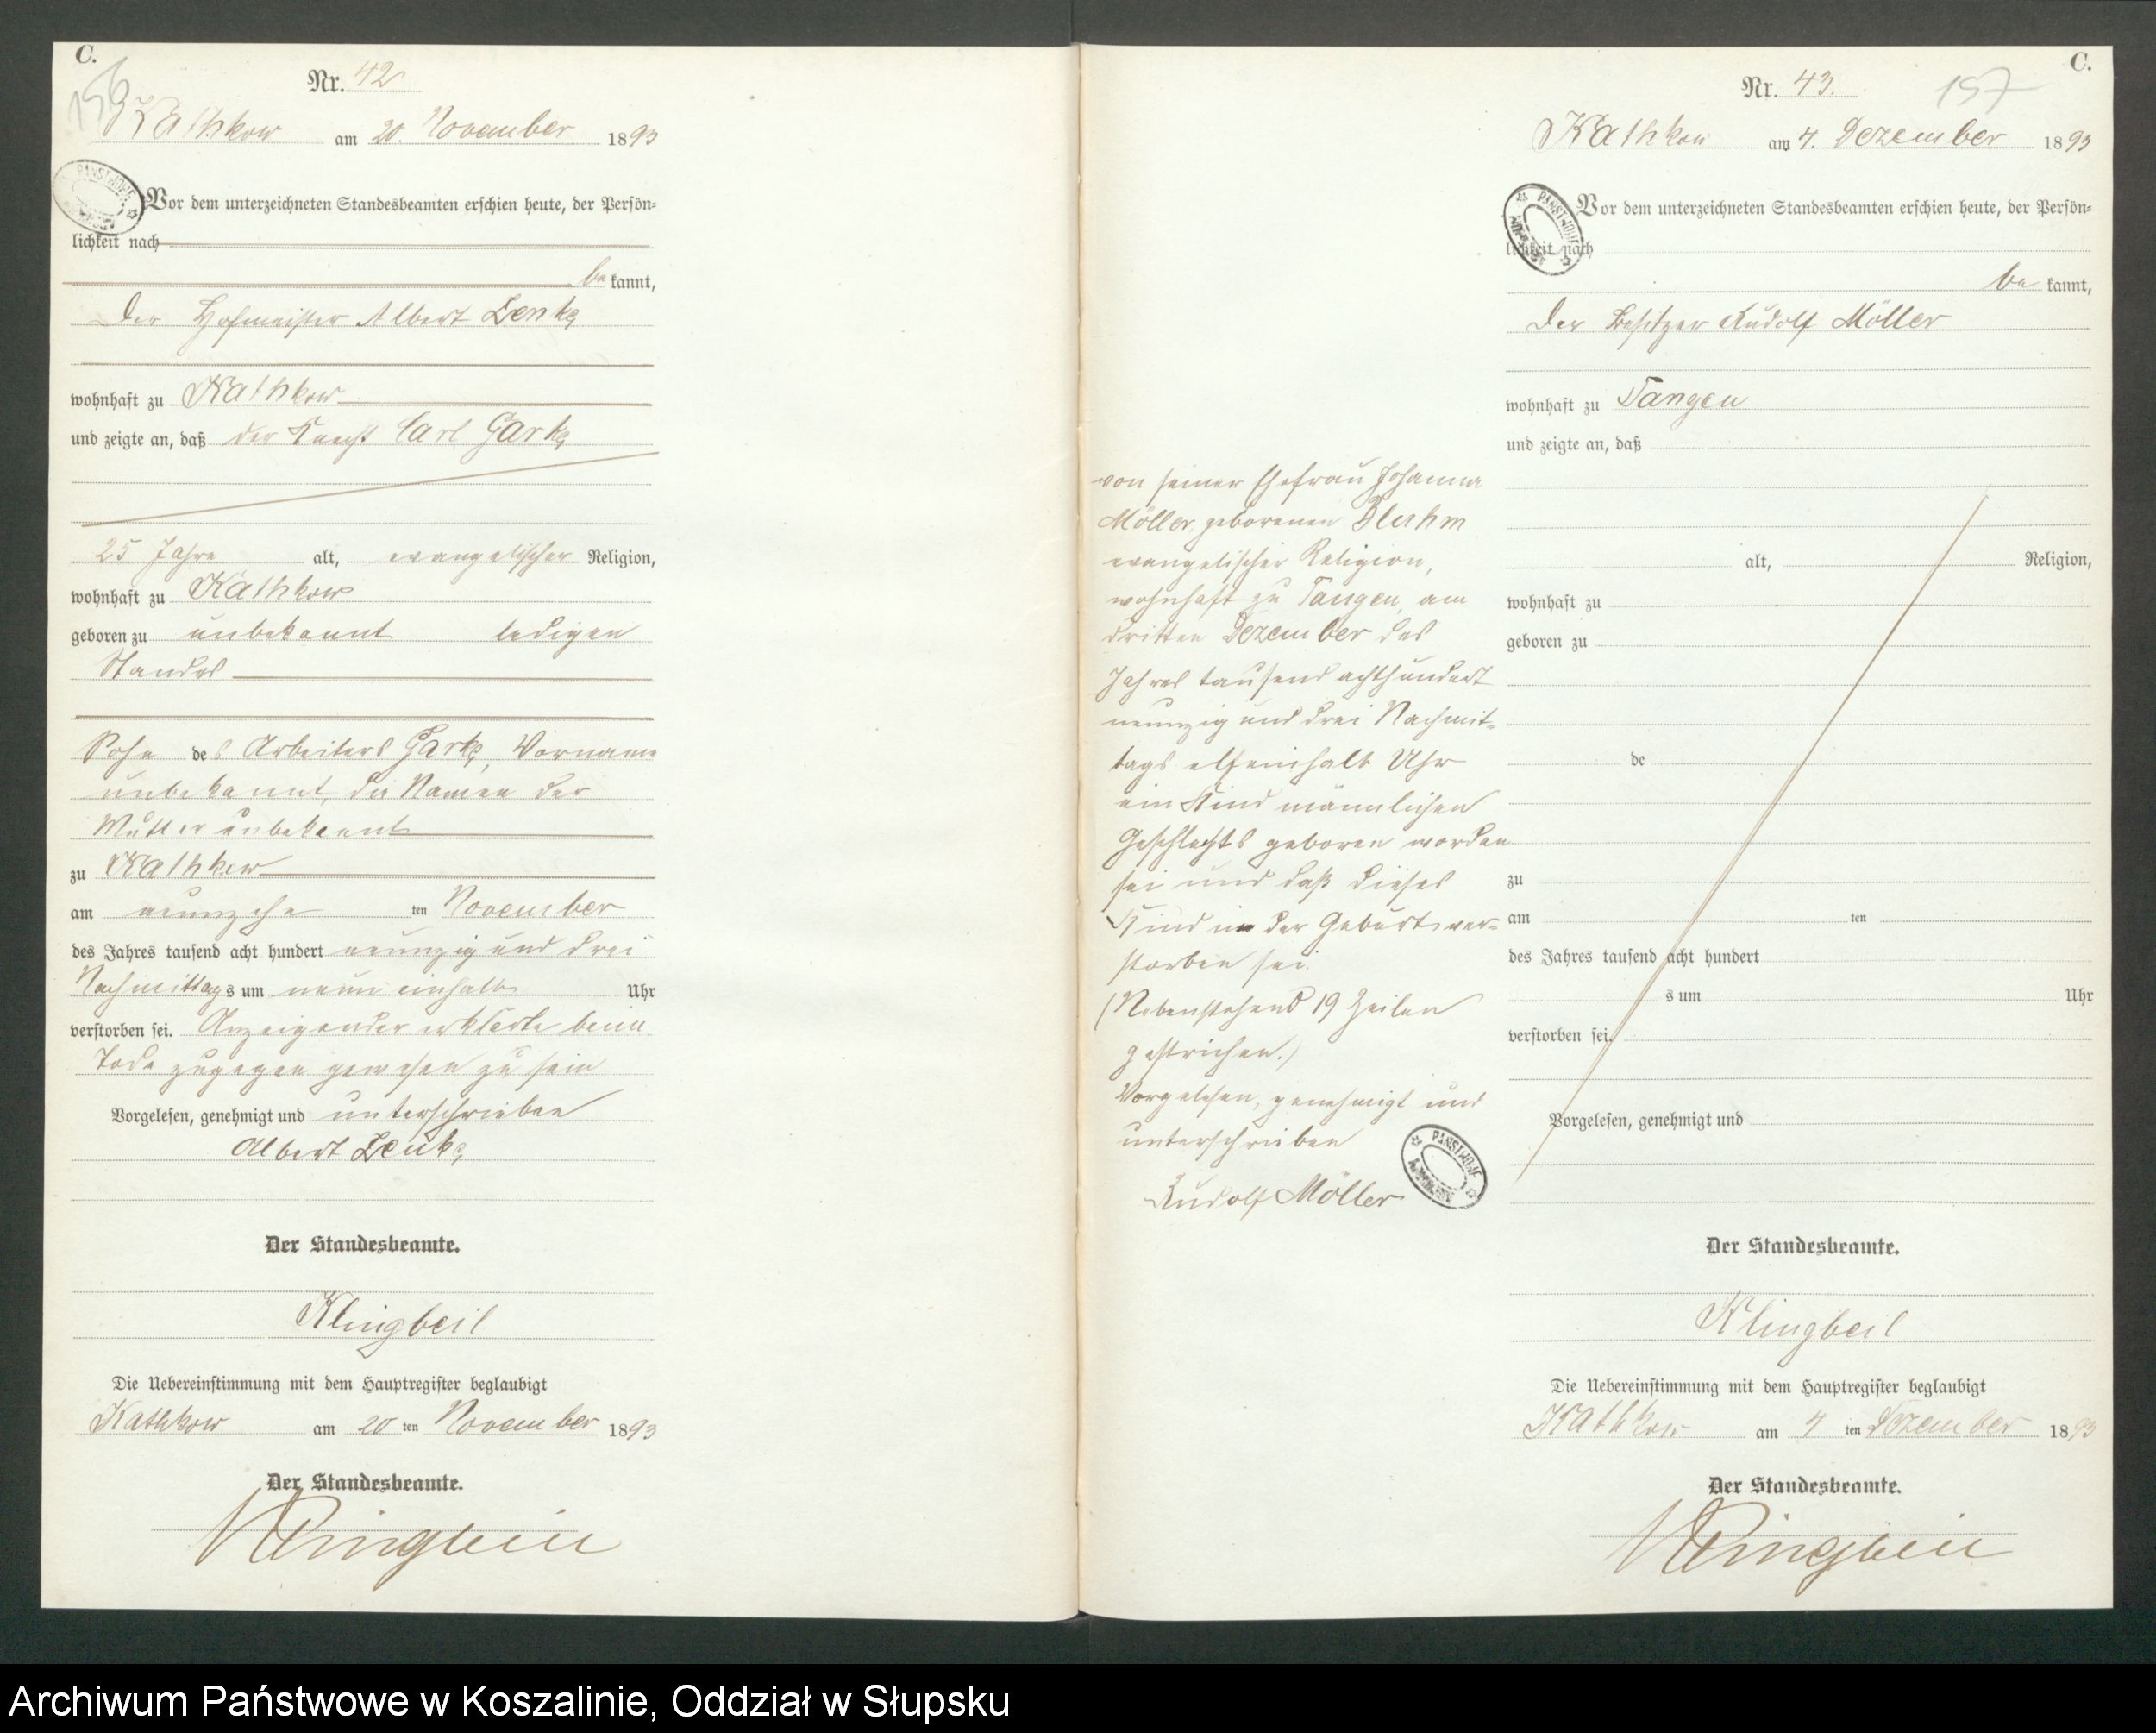 C.
156
Nr. 42
Kathkow am 20. November 1893
Vor dem unterzeichneten Standesbeamten erschien heute, der Persön=
lichkeit nach
be kannt,
der Hofmeister Albert Zenke
wohnhaft zu Kathkow
und zeigte an, daß der Knecht Carl Garke
25 Jahre alt, evangelischer Religion,
wohnhaft zu Kathkow
geboren zu unbekannt ledigen
Standes
Sohn des Arbeiters Garke, Vorname
unbekannt, die Namen der
Mutter unbekannt
zu Kathkow
am neunzehn ten November
des Jahres tausend acht hundert neunzig und drei
Nachmittags um neun einhalb Uhr
verstorben sei. Anzeigender erklärte beim
Tode zugegen gewesen zu sein
Vorgelesen, genehmigt und unterschrieben
Albert Zenke
Der Standesbeamte.
Klingbeil
Die Uebereinstimmung mit dem Hauptregister beglaubigt
Kathkow am 20 ten November 1893
Der Standesbeamte.
Klingbeil
C.
157
Nr. 43.
Kathkow am 4. Dezember 1893
Vor dem unterzeichneten Standesbeamten erschien heute, der Persön=
lichkeit nach
be kannt,
der Besitzer Rudolf Möller
wohnhaft zu Tangen
und zeigte an, daß
von seiner Ehefrau Johanna
Möller geborenen
evangelischer Religion,
wohnhaft zu Tangen, am
dritten Dezember des
Jahres tausend achthundert
neunzig und drei Nachmit=
tags elfeinhalb Uhr
ein Kind männlichen
Geschlechts geboren worden
sei und daß dieses
Kind in der Geburt ver=
storben sei.
(Nebenstehend 19 Zeilen
gestrichen.)
Vorgelesen, genehmigt und
unterschrieben
Rudolf Möller
alt, Religion,
wohnhaft zu
geboren zu
de
zu
am ten
des Jahres tausend acht hundert
s um Uhr
verstorben sei.
Vorgelesen, genehmigt und
Der Standesbeamte.
Klingbeil
Die Uebereinstimmung mit dem Hauptregister beglaubigt
Kathkow am 4 ten Dezember 1893
Der Standesbeamte.
Klingbeil
Archiwum Państwowe w Koszalinie, Oddział w Słupsku